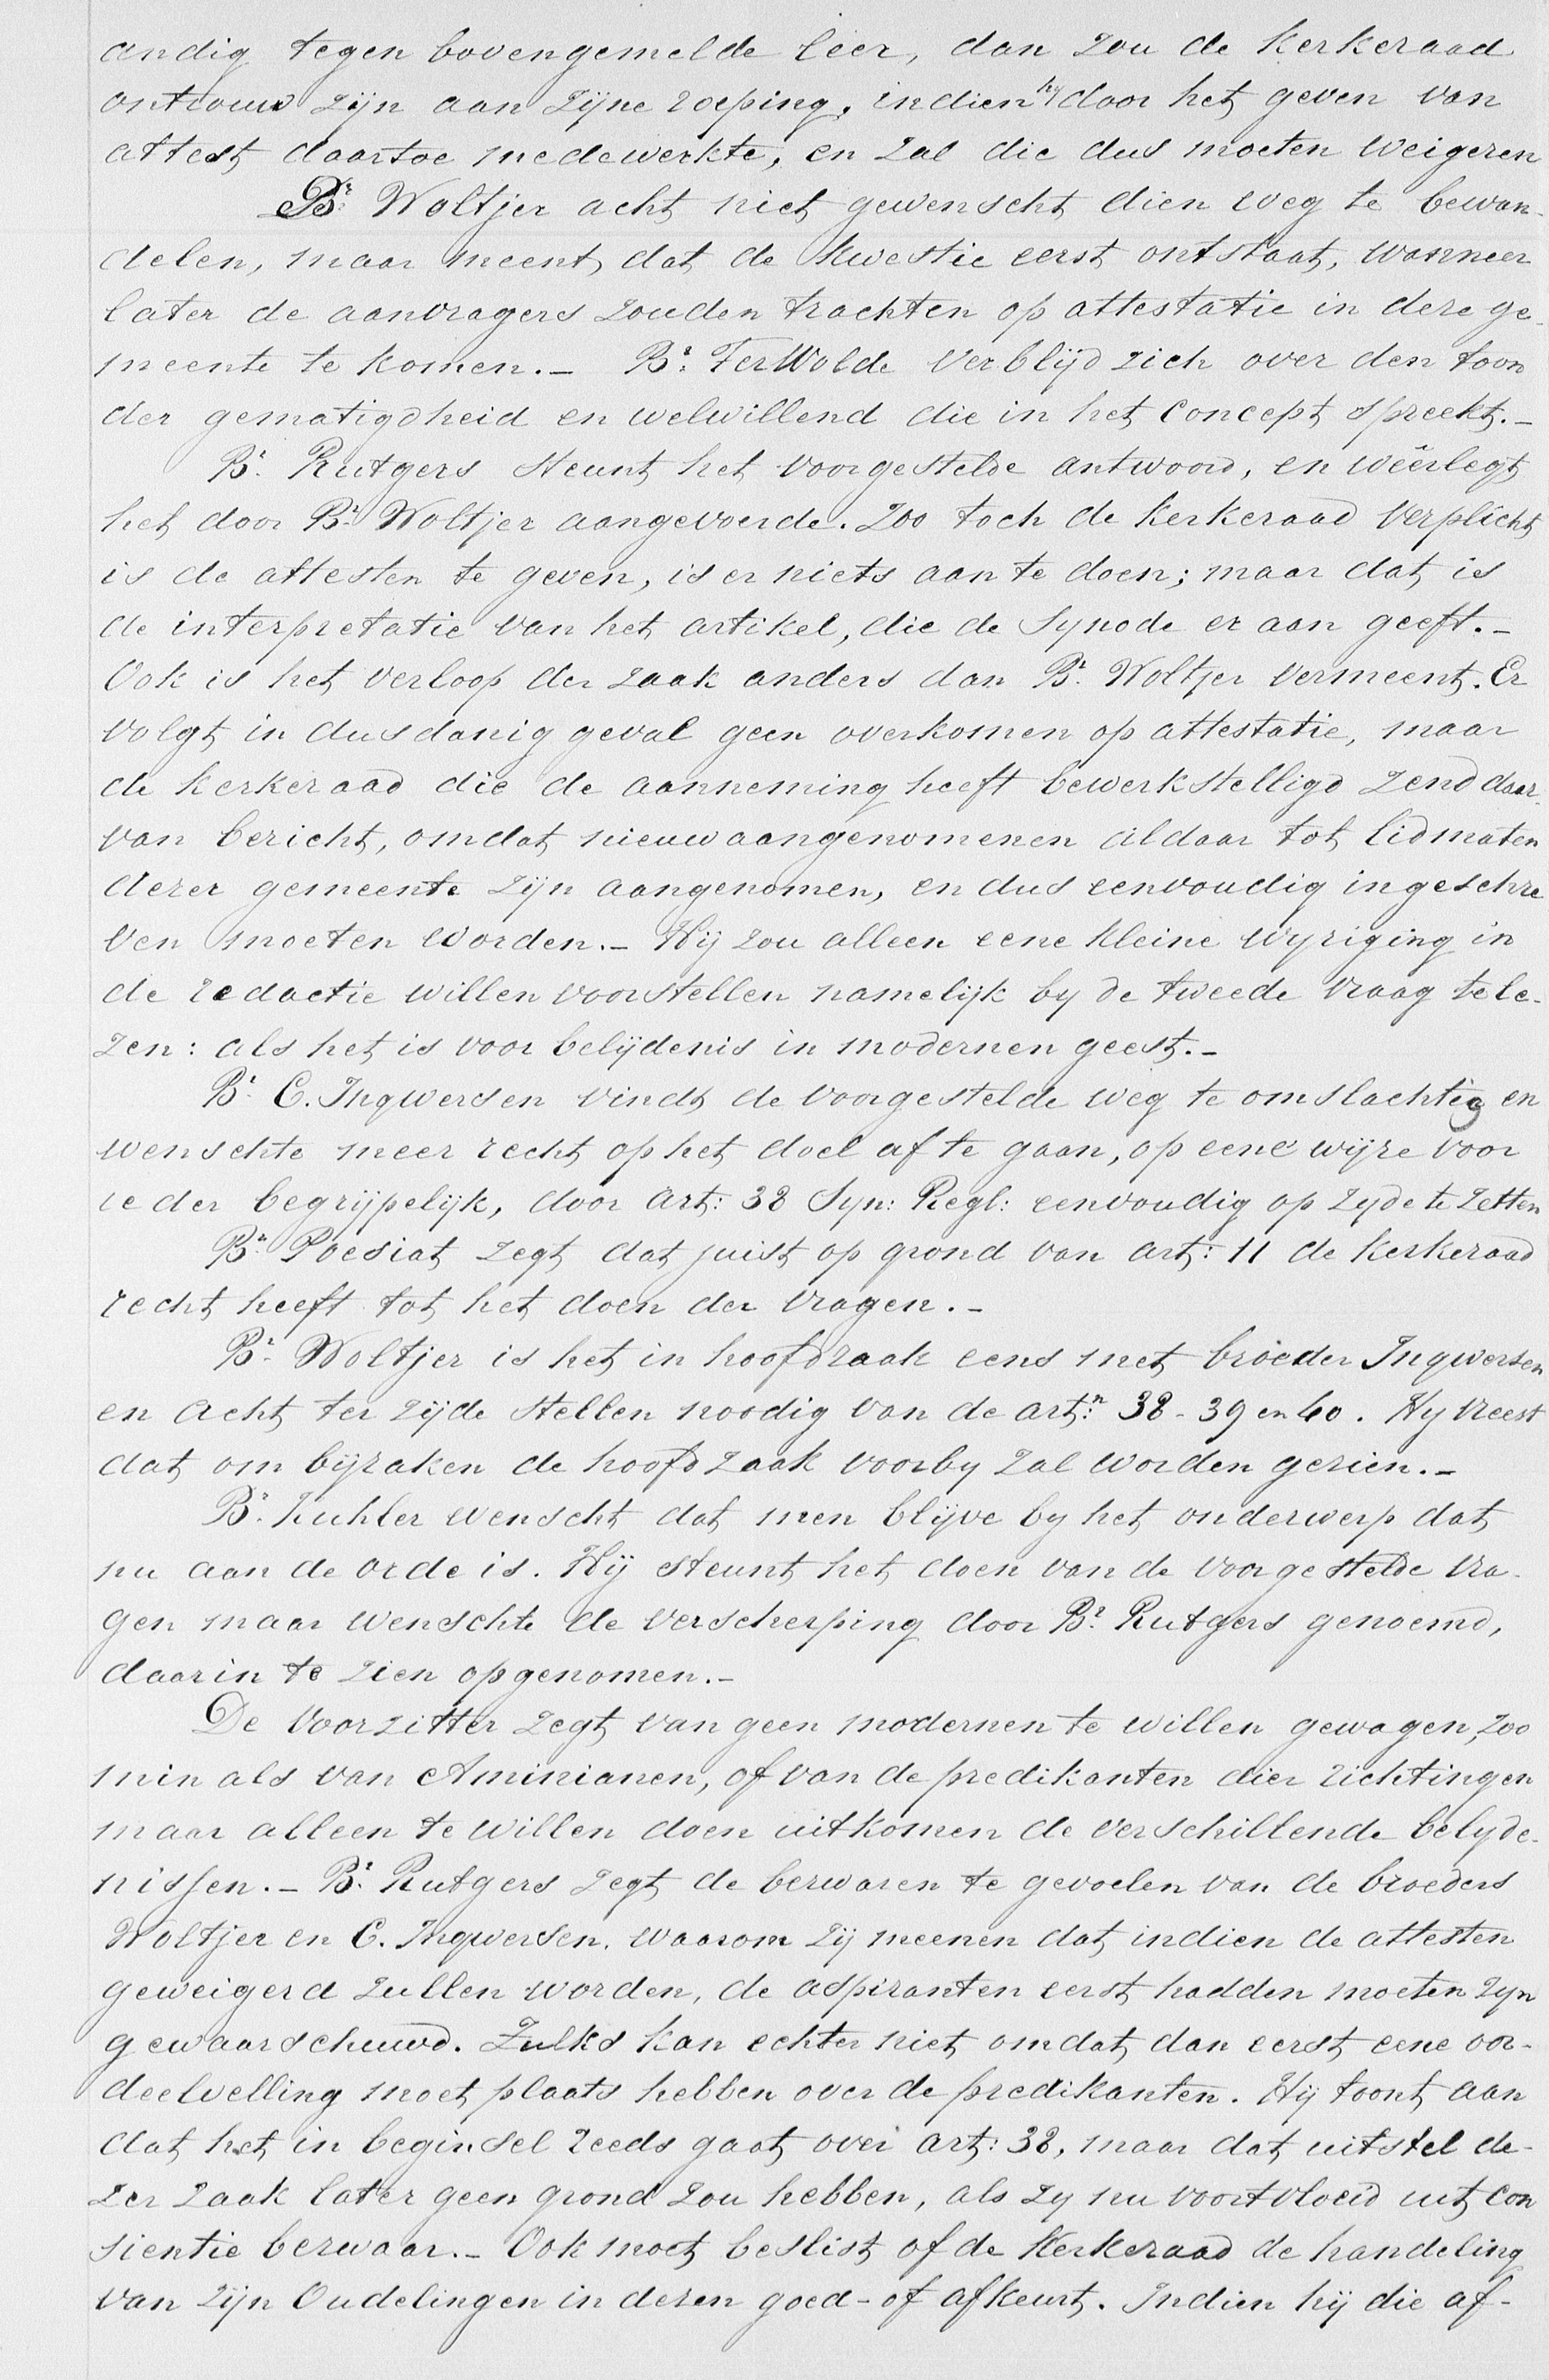 andig tegen bovengemelde leer, dan zou de kerkeraad
ontrouw zijn aan zijne roeping, indien hy door het geven van
attest daartoe medewerkte, en zal die dus moeten weigeren
Br: Woltjer acht niet gewenscht dien weg te bewan-
delen, maar meent, dat de kwestie eerst ontstaat, wanneer
later de aanvragers zouden trachten op attestatie in deze ge-
meente te komen.- Br: TerWolde verblijd zich over den toon
der gematigdheid en welwillend die in het concept spreekt.-
Br. Rutgers steunt het voorgestelde antwoord, en wêerlegt
het door Br. Woltjer aangevoerde. Zoo toch de kerkeraad verplicht
is de attesten te geven, is er niets aan te doen; maar dat is
de interpretatie van het artikel, die de Synode er aan geeft.-
Ook is het verloop der zaak anders dan Br. Woltjer vermeent. Er
volgt in dusdanig geval geen overkomen op attestatie, maar
de kerkeraad die de aanneming heeft bewerkstelligd zend daar-
van bericht, omdat nieuwaangenomenen aldaar tot lidmaten
dezer gemeente zijn aangenomen, en dus eenvoudig ingeschre
ven moeten worden.- Hij zou alleen eene kleine wyziging in
de redactie willen voorstellen namelijk by de tweede vraag te le-
zen: als het is voor belijdenis in modernen geest.-
Br. C. Ingwersen vindt de voorgestelde weg te omslachtig en
wenschte meer recht op het doel af te gaan, op eene wijze voor
ieder begrijpelijk, door art: 38 Syn: Regl: eenvoudig op zyde te zetten
Br. Poesiat zegt dat juist op grond van art: 11 de kerkeraad
recht heeft tot het doen der vragen.-
Br. Woltjer is het in hoofdzaak eens met broeder Ingwersen
en acht ter zijde stellen noodig van de art:n 38-39 en 40. Hy vreest
dat om bijzaken de hoofdzaak voorby zal worden gezien.-
Br. Kuhler wenscht dat men blijve by het onderwerp dat
nu aan de orde is. Hij steunt het doen van de voorgestelde vra-
gen maar wenschte de verscherping door Br. Rutgers genoemd,
daarin te zien opgenomen.-
De Voorzitter zegt van geen modernen te willen gewagen, zoo
min als van Aminianen, of van de predikanten dier richtingen
maar alleen te willen doen uitkomen de verschillende belyde-
nissen.- Br. Rutgers zegt de bezwaren te gevoelen van de broeders
Woltjer en C. Ingwersen. waarom zij meenen dat indien de attesten
geweigerd zullen worden, de aspiranten eerst hadden moeten zyn
gewaarschuwd. Zulks kan echter niet omdat dan eerst eene oor-
deelvelling moet plaats hebben over de predikanten. Hij toont aan
dat het in beginsel reeds gaat over art: 38, maar dat uitstel de-
zer zaak later geen grond zou hebben, als zy nu voortvloeid uit con
sientie bezwaar.- Ook moet beslist of de kerkeraad de handeling
van zijn Oudelingen in dezen goed- of afkeurt. Indien hij die af-